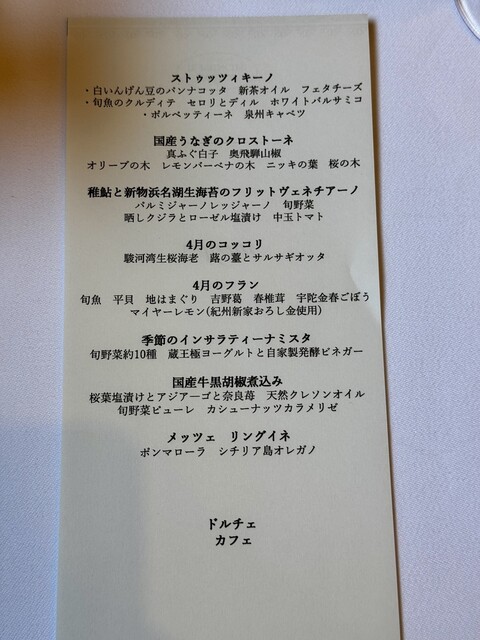 ストゥッツィキーノ
・白いんげん豆のパンナコッタ　新茶オイル　フェタチーズ
・旬魚のクルディテ　セロリとディル　ホワイトバルサミコ
・ポルペッティーネ　泉州キャベツ
国産うなぎのクロストーネ
真ふぐ白子　奥飛騨山椒
オリーブの木　レモンバーベナの木　ニッキの葉　桜の木
稚鮎と新物浜名湖生海苔のフリットヴェネチアーノ
パルミジャーノレッジャーノ　旬野菜
晒しクジラとローゼル塩漬け　中玉トマト
4月のコッコリ
駿河湾生桜海老　蕗の薹とサルサギオッタ
4月のフラン
旬魚　平貝　地はまぐり　吉野葛　春椎茸　宇陀金春ごぼう
マイヤーレモン(紀州新家おろし金使用)
季節のインサラティーナミスタ
旬野菜約10種　蔵王極ヨーグルトと自家製発酵ビネガー
国産牛黒胡椒煮込み
桜葉塩漬けとアジアーゴと奈良苺　天然クレソンオイル
旬野菜ピューレ　カシューナッツカラメリゼ
メッツェ　リングイネ
ポンマローラ　シチリア島オレガノ
ドルチェ
カフェ